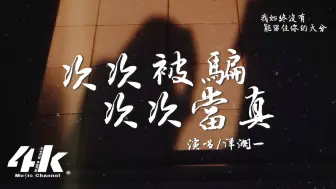 我始終沒有
能留住你的天分
次次被騙
次次當真
演唱/洋瀾一
4k
Music Channel